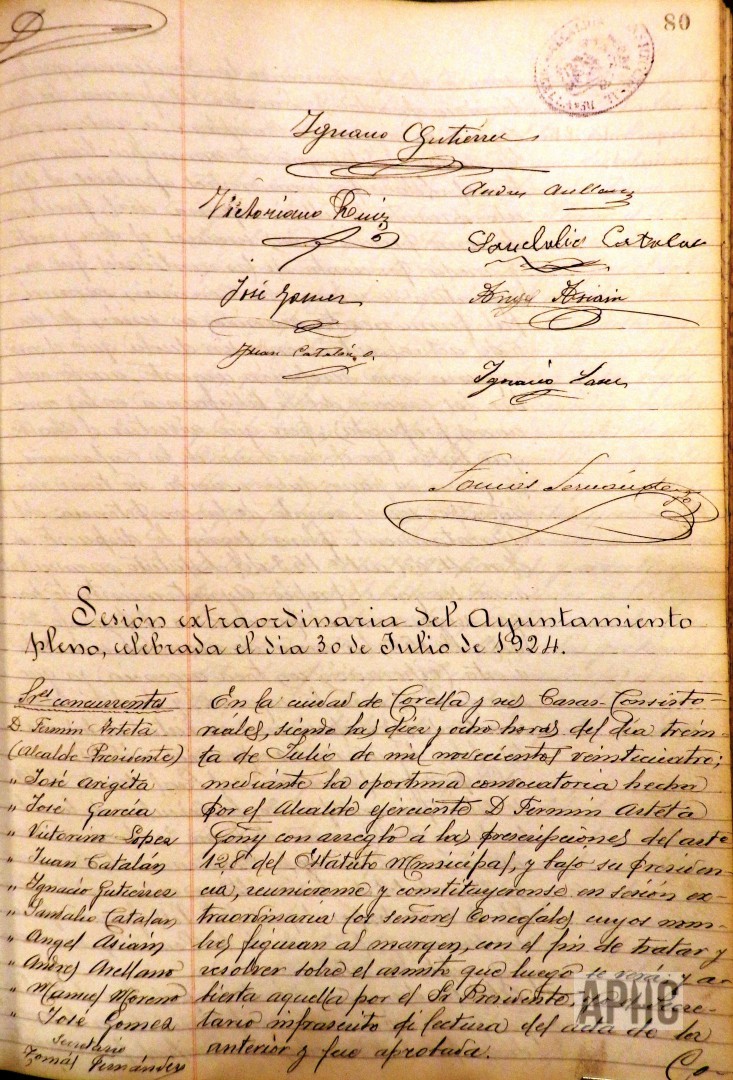 80
Ignacio Gutiérrez
Victoriano Ruiz
Andres Arellano
Sandalio Catalan
José Gomez
Angel Asiain
Juan Catalán
Ignacio
Tomás Fernández
Sesión extraordinaria del Ayuntamiento
pleno, celebrada el dia 30 de Julio de 1924.
Sres concurrentes
D Fermin Arteta
(Alcalde Presidente)
" José Arigita
" José García
" Victorino Lopez
" Juan Catalán
" Ignacio Gutiérrez
" Sandalio Catalan
" Angel Asiain
" Andres Arellano
" Manuel Moreno
" José Gomez
Secretario
Tomás Fernández
En la ciudad de Corella y sus Casas Consisto-
riales, siendo las diez y ocho horas del día trein-
ta de Julio de mil novecientos veinticuatro;
mediante la oportuna convocatoria hecha
por el Alcalde ejerciente D Fermin Arteta
Goñy con arreglo á las prescripciones del arto
128 del Estatuto Municipal, y bajo su Presiden-
cia, reunieronse y constituyeronse en sesión ex-
traordinaria los señores Concejales cuyos nom-
bres figuran al margen, con el fin de tratar y
resolver sobre el asunto que luego se verá: y a-
bierta aquella por el Sr Presidente, Secre-
tario infrascrito dí lectura del acta de la
anterior y fue aprobada.
Co-
APHC